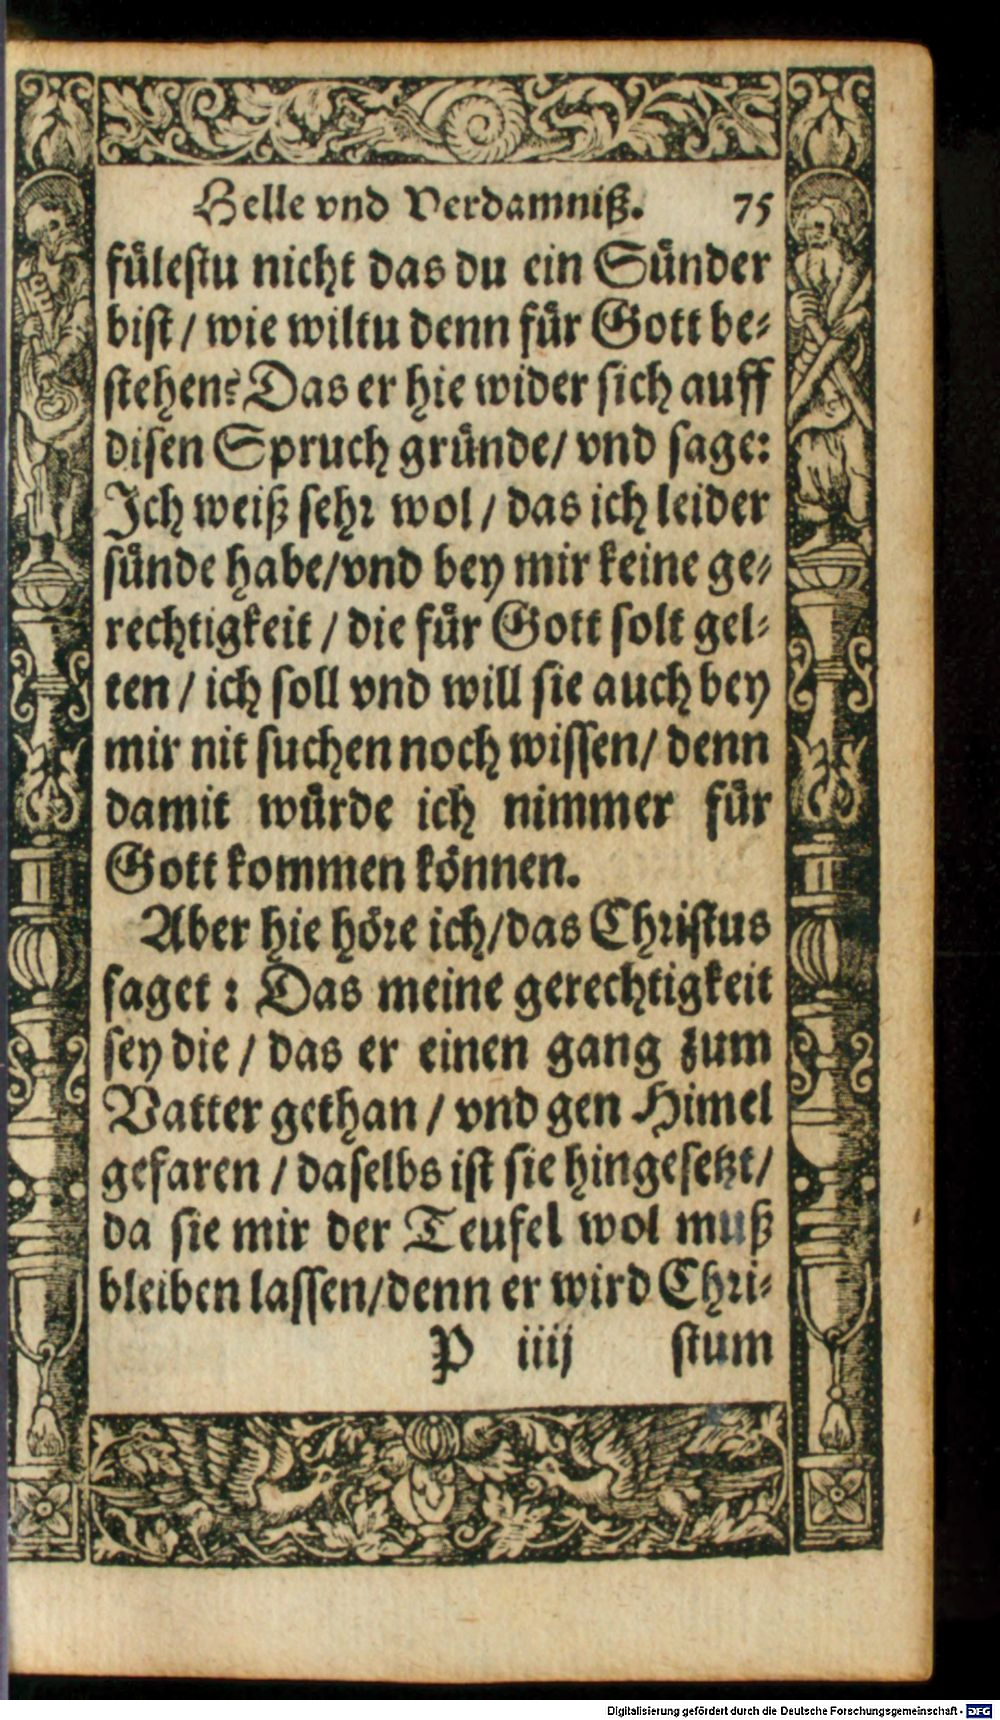 Helle vnd Verdamniß. 75
fülestu nicht das du ein Sünder
bist / wie wiltu denn für Gott be⸗
stehen? Das er hie wider sich auff
disen Spruch gründe / vnd sage:
Ich weiß sehr wol / das ich leider
sünde habe / vnd bey mir keine ge⸗
rechtigkeit / die für Gott solt gel⸗
ten / ich soll vnd will sie auch bey
mir nit suchen noch wissen / denn
damit würde ich nimmer für
Gott kommen können.
Aber hie höre ich / das Christus
saget : Das meine gerechtigkeit
sey die / das er einen gang zum
Vatter gethan / vnd gen Himel
gefaren / daselbs ist sie hingesetzt /
da sie mir der Teufel wol muß
bleiben lassen / denn er wird Chri⸗
P iiij stum
Digitalisierung gefördert durch die Deutsche Forschungsgemeinschaft - DFG